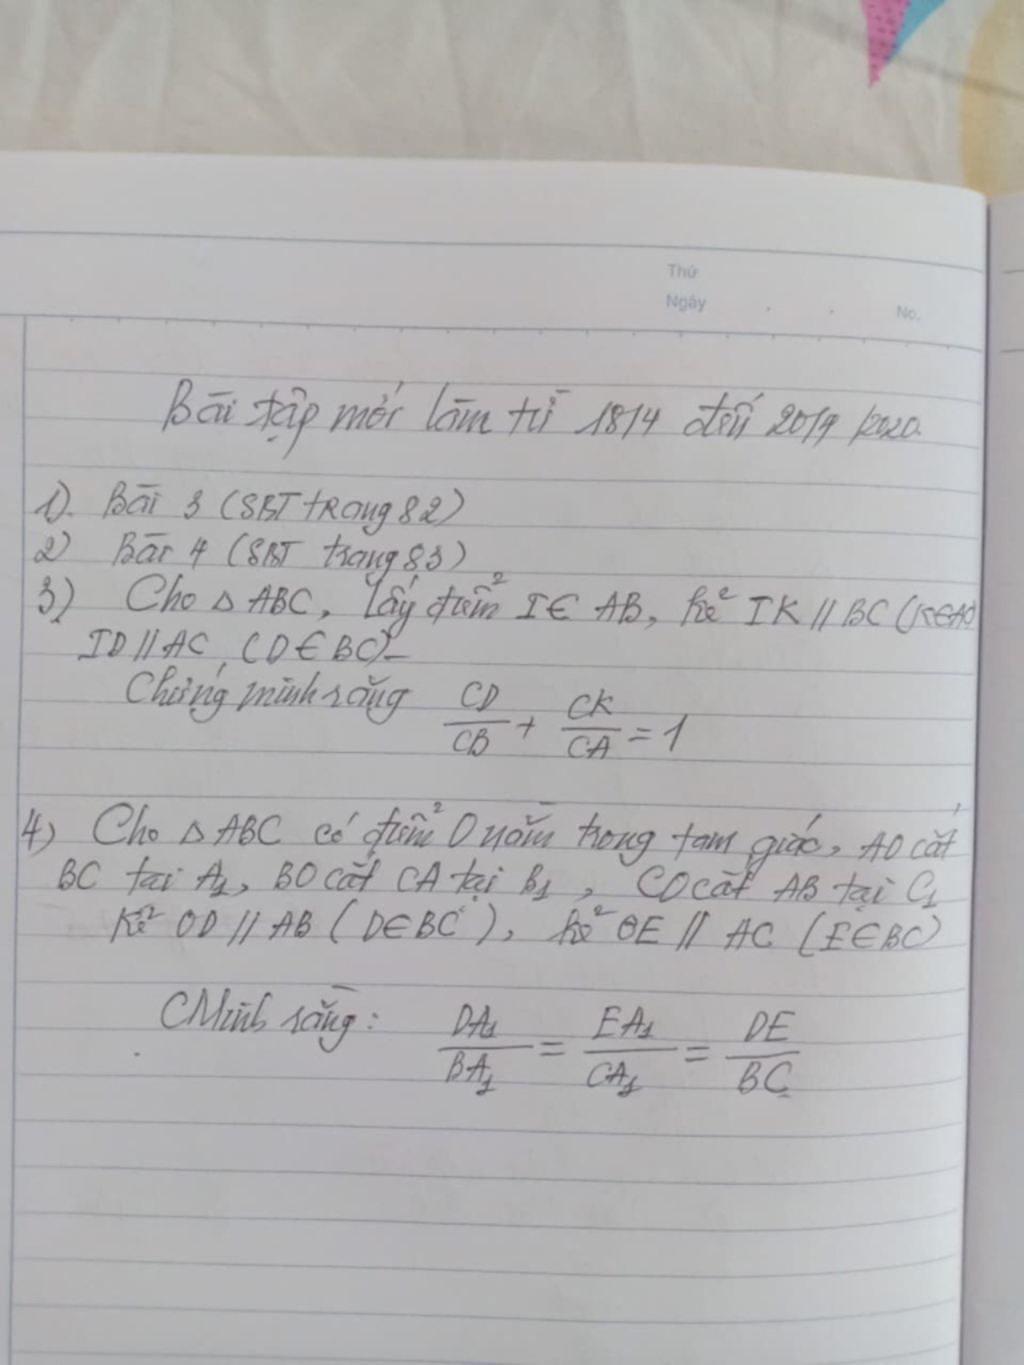 Thứ
Ngày . . No.
Bài tập mới làm từ 18/4 đến 20/4/2020
1). Bài 3 (SBT trang 82)
2) Bài 4 (SBT trang 83)
3) Cho △ ABC, lấy điểm I ∈ AB, kẻ IK // BC (K∈AC)
ID // AC, (D ∈ BC)-
Chứng minh rằng CD/CB + CK/CA = 1
4) Cho △ ABC có điểm O nằm trong tam giác, AO cắt
BC tại A₁, BO cắt CA tại B₁, CO cắt AB tại C₁
Kẻ OD // AB (D∈BC), kẻ OE // AC (E∈BC)
CMinh rằng: DA₁/BA₁ = EA₁/CA₁ = DE/BC